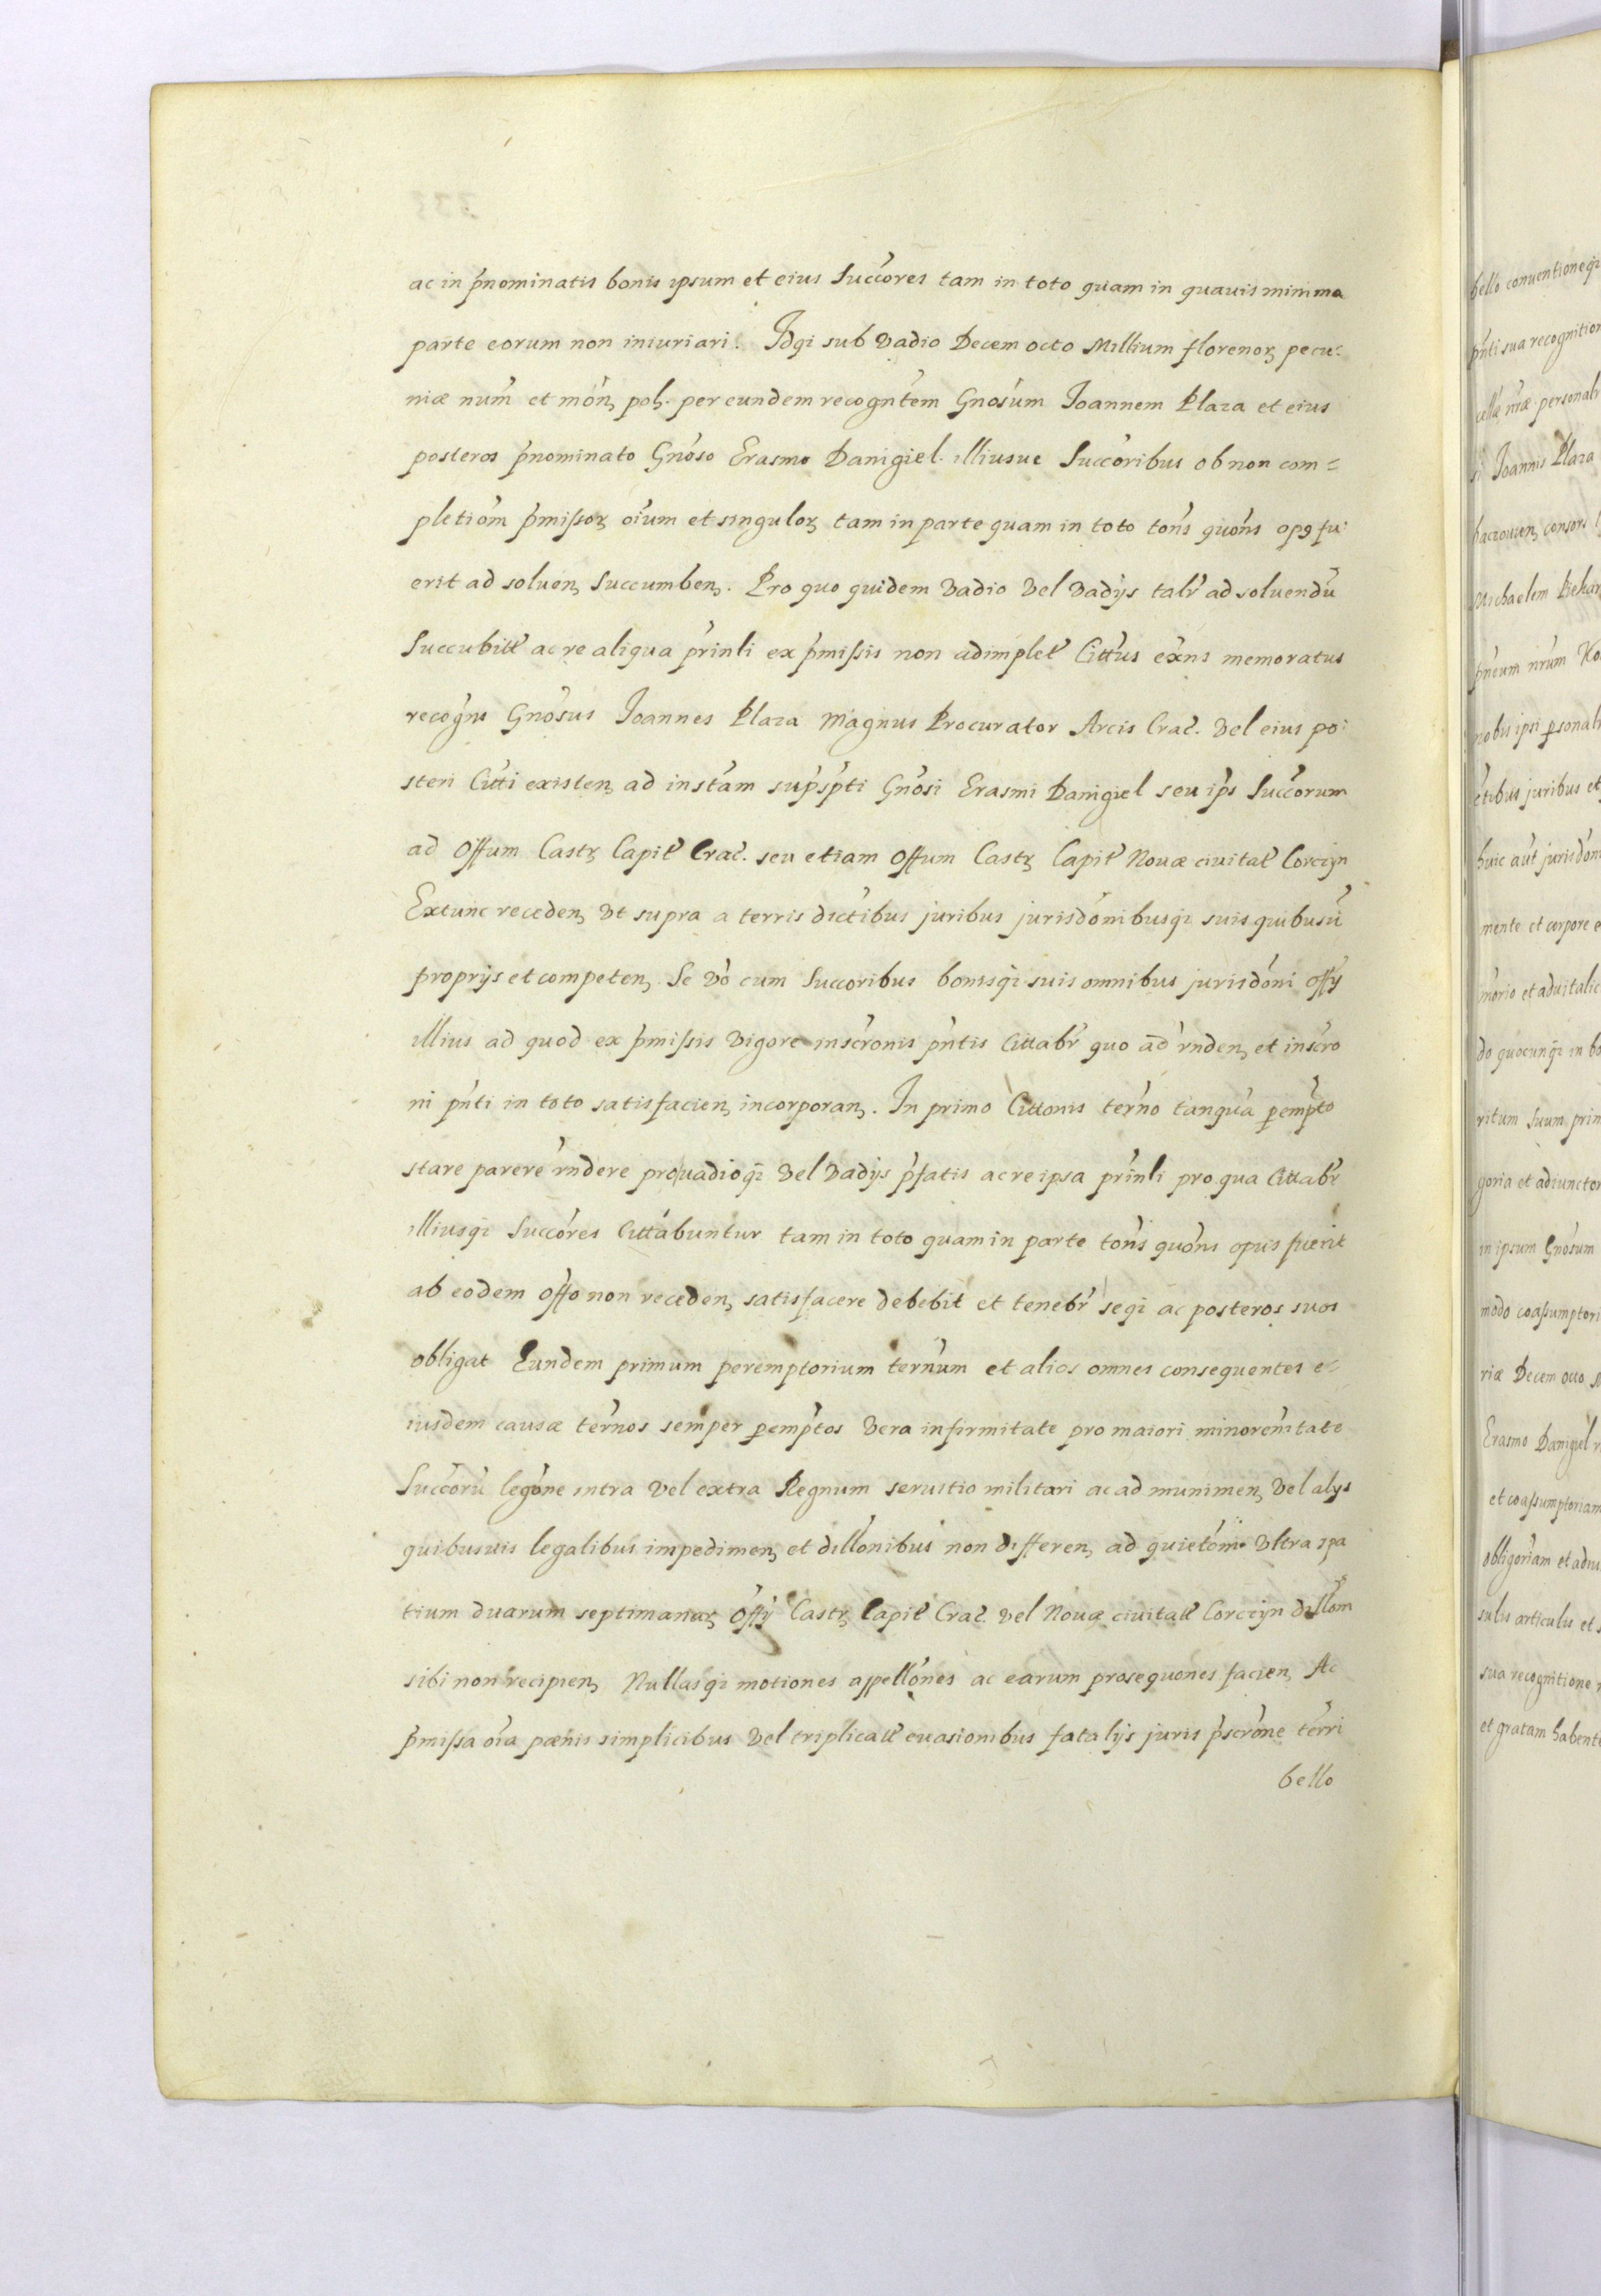 ac in p̃nominatis bonis ipsum et eius Succ̃ores tam in toto quam in quauis minima
parte eorum non iniuriari. Idq̃ sub Vadio Decem octo Millium florenorꝫ pecu=
niæ num̃ et moñ, pol. per eundem recogñtem Gnõsum Ioannem Plaza et eius
posteros p̃nominato Gnõso Erasmo Danigiel illiusue Succ̃oribus ob non com=
pletiõm p̃missorꝫ oĩum et singulorꝫ tam in parte quam in toto tõns quõns opꝯ fu=
erit ad soluen, Succumben. Pro quo quidem Vadio Vel Vadijs talr̃ ad soluendũ
Succubitt̃ ac re aliqua prĩnli ex p̃missis non adimplet̃ Citt̃us exñs memoratus
recogñs Gnõsus Ioannes Plaza Magnus Procurator Arcis Crac̃. Vel eius po=
steri Citt̃i existen, ad instãm sup̃sp̃ti Gnõsi Erasmi Danigiel seu ip̃s Succ̃orum
ad Off̃um Castrꝫ Capit̃ Crac̃. seu etiam Off̃um Castrꝫ Capit̃ Nouæ ciuitat̃ Corczyn
Extunc receden, Vt supra a terris dictibus juribus jurisdõnibusq̃ suis quibusũ
proprijs et competen, Se Võ cum Succoribus bonisq̃ suis omnibus jurisdõni off̃ij
illius ad quod ex p̃missis Vigore inscrõnis pñtis Cittabr̃ quo ad̃ rñden, et inscrõ
ni pñti in toto satisfacien, incorporan. In primo Cittonis terñо tanquã ꝑemp̃to
stare parere rñdere pro vadioq̃ Vel Vadijs p̃fatis ac re ipsa prĩnli pro qua Cittabr̃
illiusq̃ Succõres Cittabuntur tam in toto quam in parte tõns quõns opus fuerit
ab eodem Off̃o non receden, satisfacere debebit et tenebr̃ seq̃ ac posteros suos
obligat Eundem primum peremptorium terñum et alios omnes consequentes e=
iusdem causæ terños semper ꝑemp̃tos Vera infirmitate pro maiori minoreñitate
Succ̃orũ legõne intra Vel extra Regnum seruitio militari ac ad munimen, Vel alys
quibusuis legalibus impedimen, et dillõnibus non differen, ad quietõm Vltra spa
tium duarum septimanarꝫ Off̃ij Castrꝫ Capit̃ Crac̃. Vel Nouæ ciuitatt̃ Corczyn dillõm
sibi non recipien, Nullasq̃ motiones appellõnes ac earum prosequones facien, Ac
p̃missa oĩa pœnis simplicibus Vel triplicatt̃ euasionibus fatalijs juris p̃scrõne terri
bello
bello conuentioneq̃
pñti sua recognition
cellæ nr̃æ personalr̃
Ioannis Plaza
consors
Michaelem Piekar
nobis ipsi ꝑsonalr̃
juribus et
huic aut̃ jurisdõni
mente et corpore e
et aduitalic
do quocunq̃ in bo
ritum Suum prin
goria et adiunctor
in ipsum Gnõsum
modo coassumptori
riæ Decem octo
Erasmo Danigiel
et coassumptoriam
obligor̃iam et adiu
sulis articulis et
sua recognitione
et gratam habent